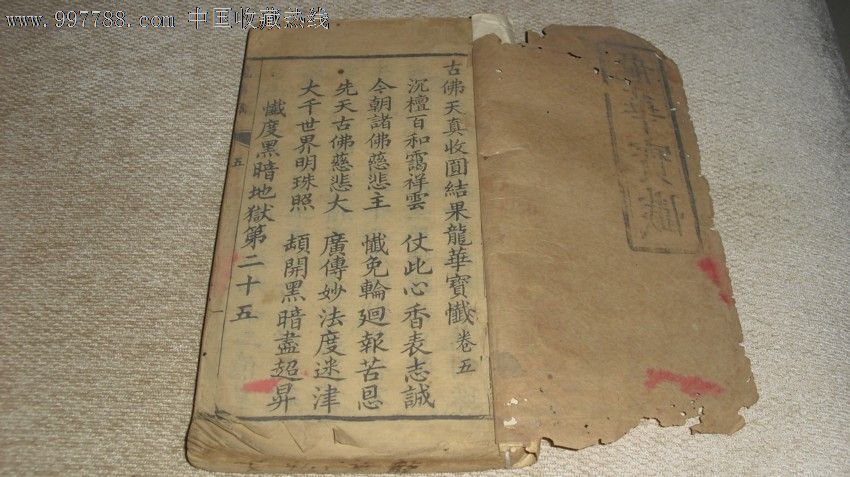 www.997788.com 中国收藏热线
古佛天真收圓結果龍華寶懺 卷五
沉檀百和靄祥雲 仗此心香表志誠
今朝諸佛慈悲主 懺免輪迴報苦恩
先天古佛慈悲大 廣傳妙法度迷津
大千世界明珠照 頡開黑暗盡超昇
懺度黑暗地獄第二十五
五
華寶懺